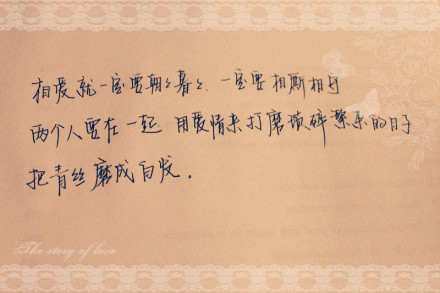 相爱就一定要朝朝暮暮。一定要相厮相守
两个人要在一起 用爱情来打磨琐碎繁乐的日子
把青丝磨成白发。
The story of love